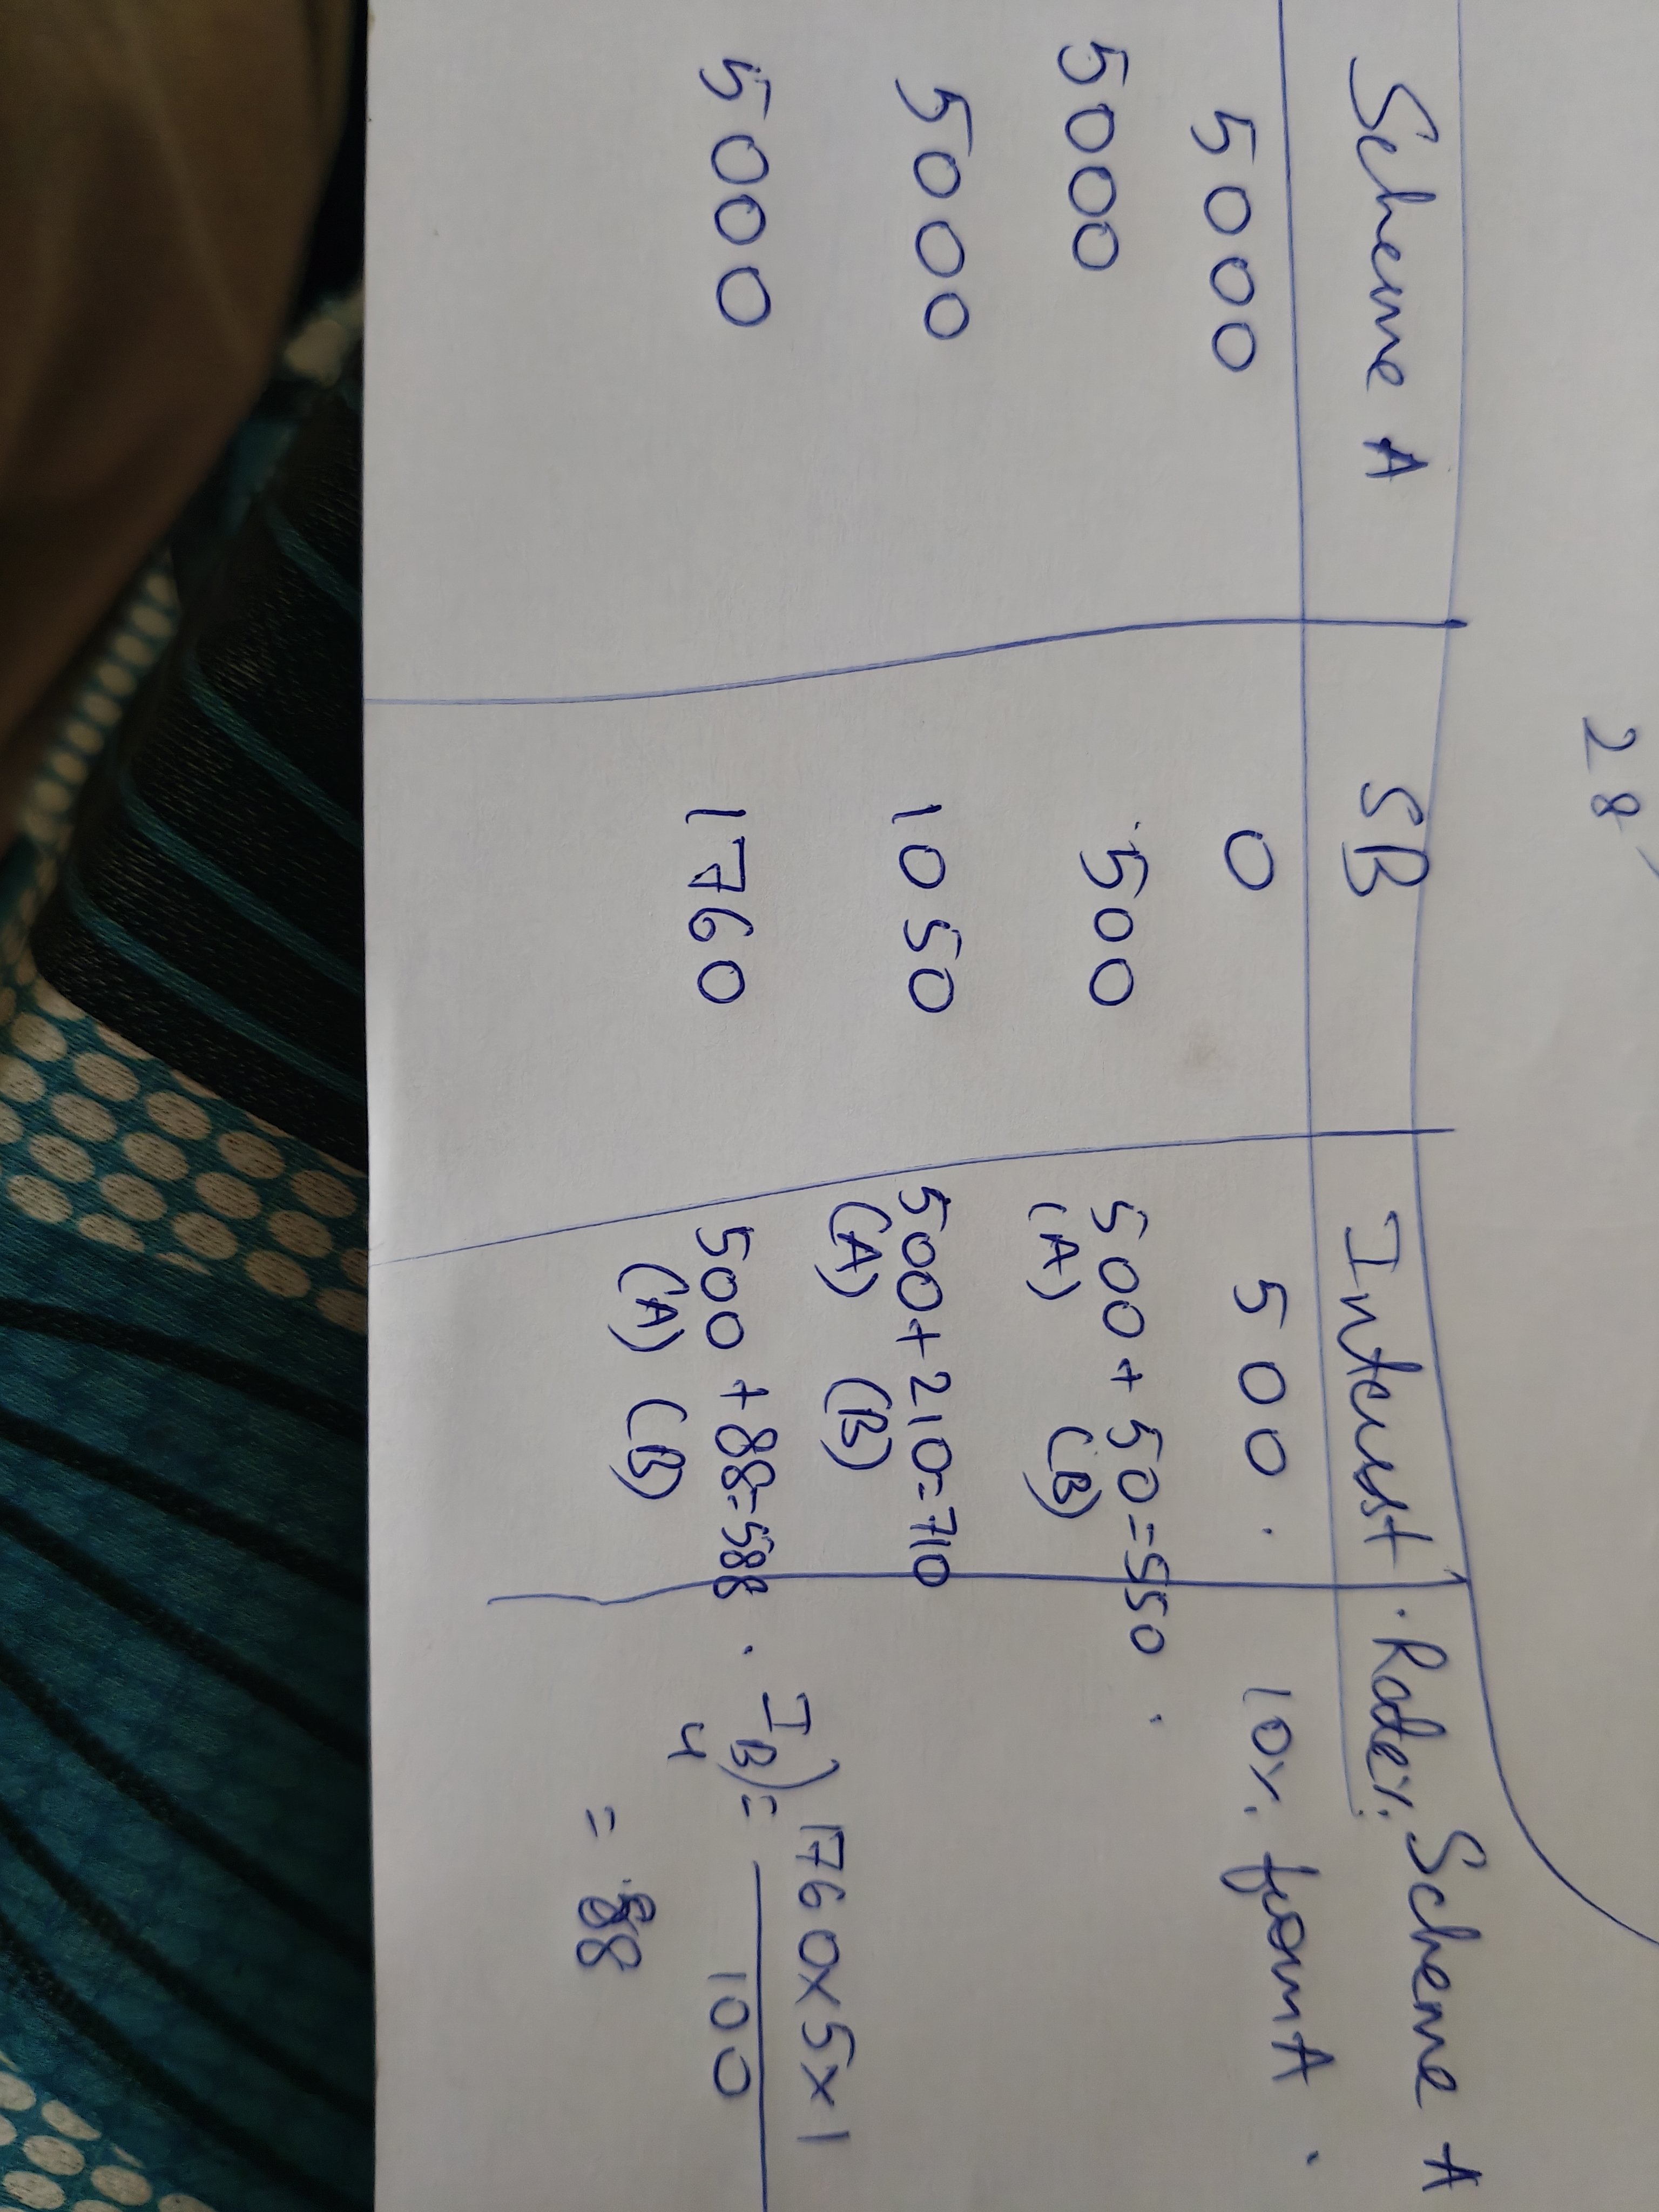 28
Scheme A SB Interest Rate%. Scheme A
5000 0 500. 10%. from A.
5000 500 500 + 50 = 550.
(A) (B)
5000 1050 500 + 210 = 710
(A) (B)
5000 1760 500 + 88 = 588. I B) = 1760 x 5 x 1
(A) (B) 4 100
= 88